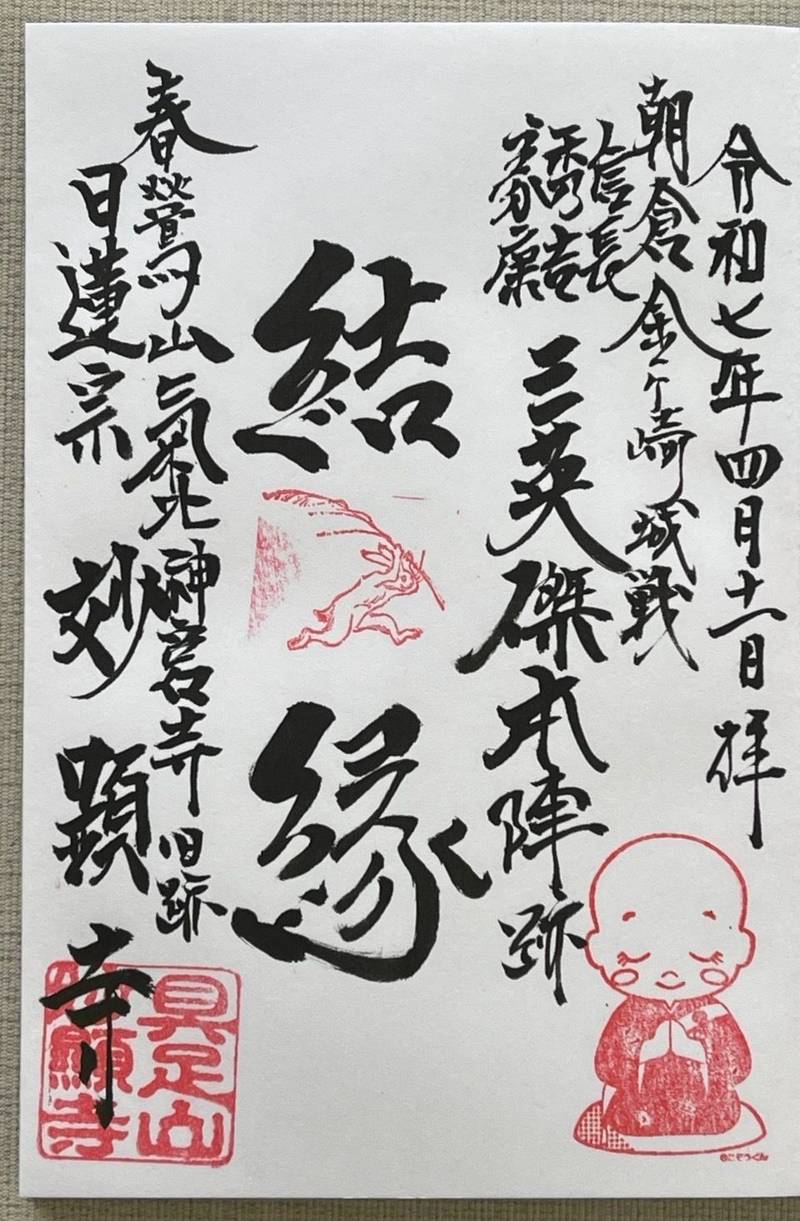 令和七年四月十一日 拝
朝倉金ヶ崎城戦
信長
秀吉
家康
三英傑本陣跡
結縁
春鶯山氣比神宮寺旧跡
日蓮宗 妙顕寺
具足山
妙顯寺
©こぞうくん